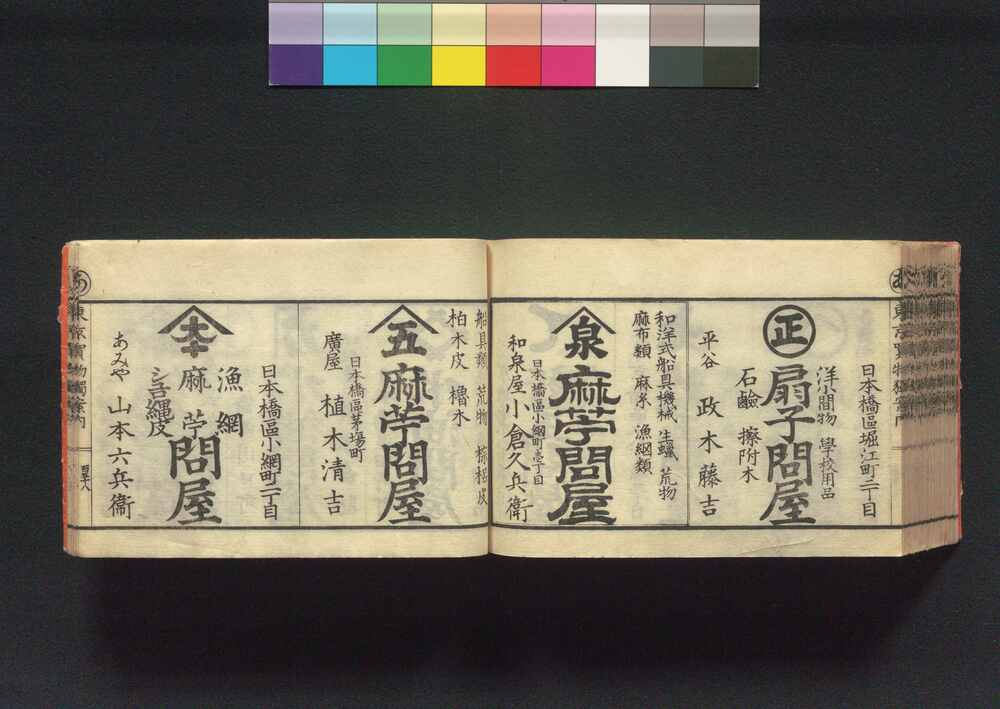 日本橋區堀江町二丁目
洋小間物 學校用品
正
扇子問屋
石鹼 擦附木
平谷 政木藤吉
和洋式船具機械 生蠟 荒物
麻布類 麻糸 漁網類
泉
麻苧問屋
日本橋區小網町壱丁目
和泉屋 小倉久兵衛
船具類 荒物 棕梠皮
柏木皮 櫓木
五
麻苧問屋
日本橋區茅場町
廣屋 植木清吉
日本橋區小網町二丁目
漁網
麻苧
問屋
あみや 山本六兵衞
あ
東京買物獨案内
四十八